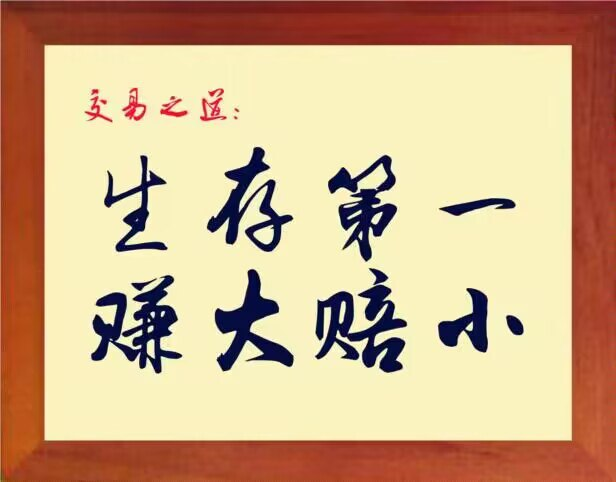 交易之道:
生存第一
赚大赔小